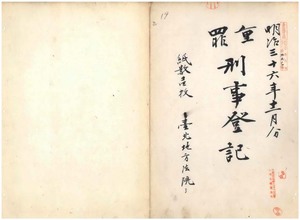 明治三十六年十一月分
重罪
刑事登記
紙數壱枚
臺北地方法院
19